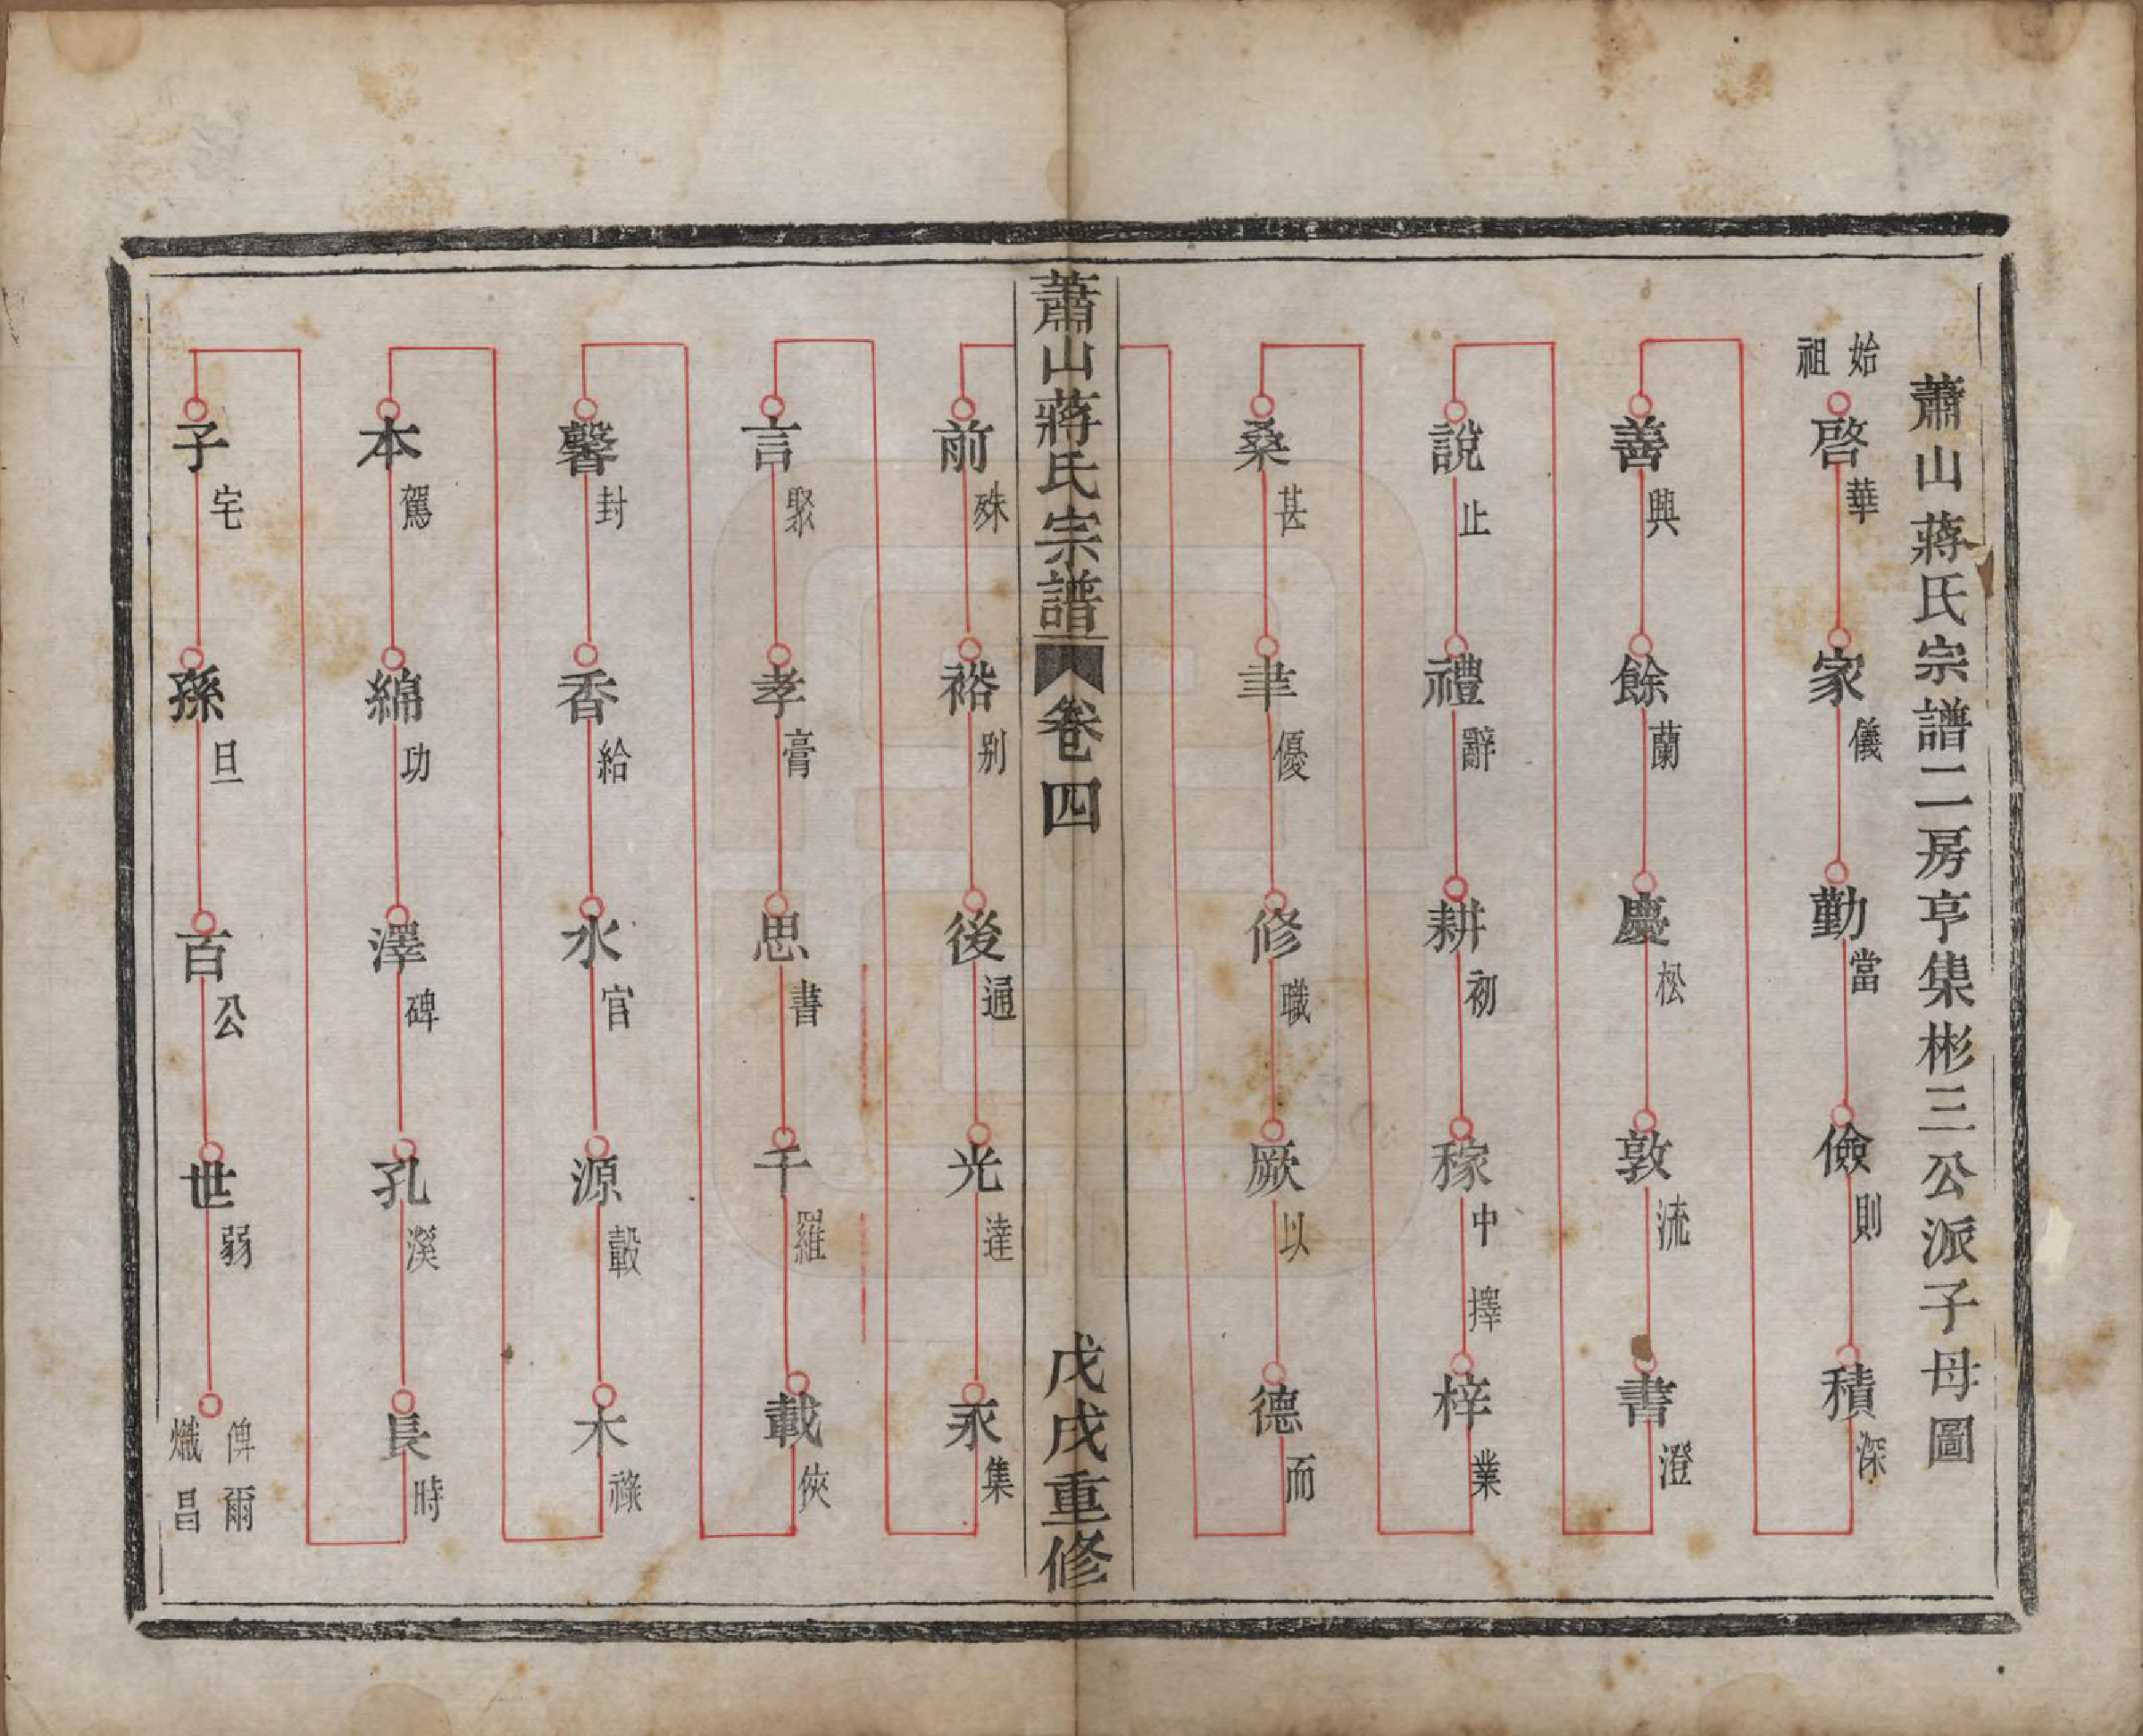 蕭山蔣氏宗譜二房亨集彬三公派子母圖
始祖
啓華 家儀 勤當 儉則 積深
善興 餘蘭 慶松 敦流 書澄
說止 禮辭 耕初 稼中 擇 梓業
桑甚 聿優 修職 厥以 德而
蕭山蔣氏宗譜 卷四 戊戌重修
前殊 裕别 後通 光達 承集
言聚 孝膏 思書 千羅 載俠
馨封 香給 水官 源轂 木祿
本駕 綿功 澤碑 孔溪 長時
子宅 孫旦 百公 世弱
俾爾
熾昌